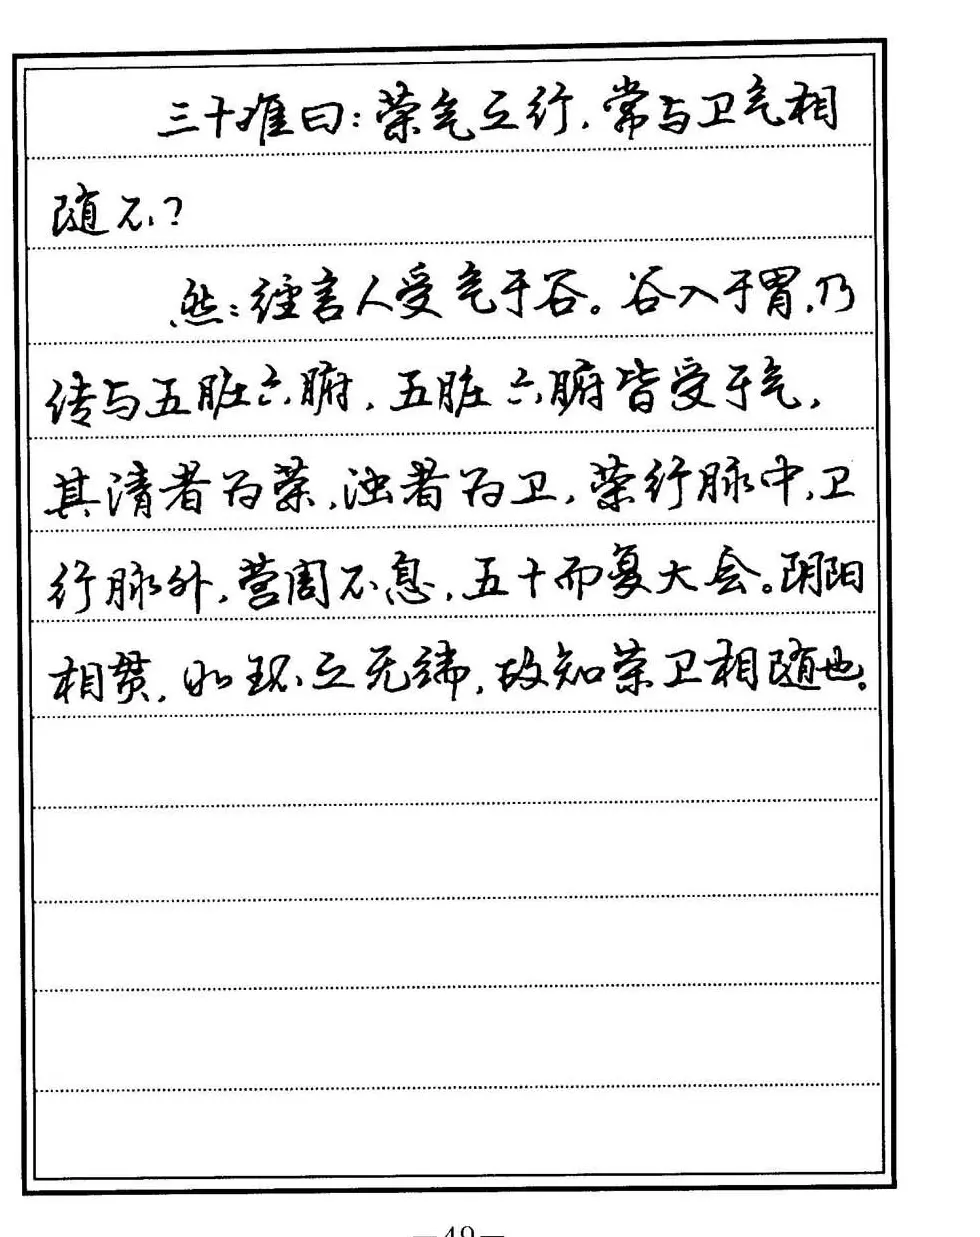 三十难曰：荣气之行，常与卫气相
随不？
然：经言人受气于谷。谷入于胃，乃
传与五脏六腑，五脏六腑皆受于气，
其清者为荣，浊者为卫，荣行脉中，卫
行脉外，营周不息，五十而复大会。阴阳
相贯，如环之无端，故知荣卫相随也。
—49—